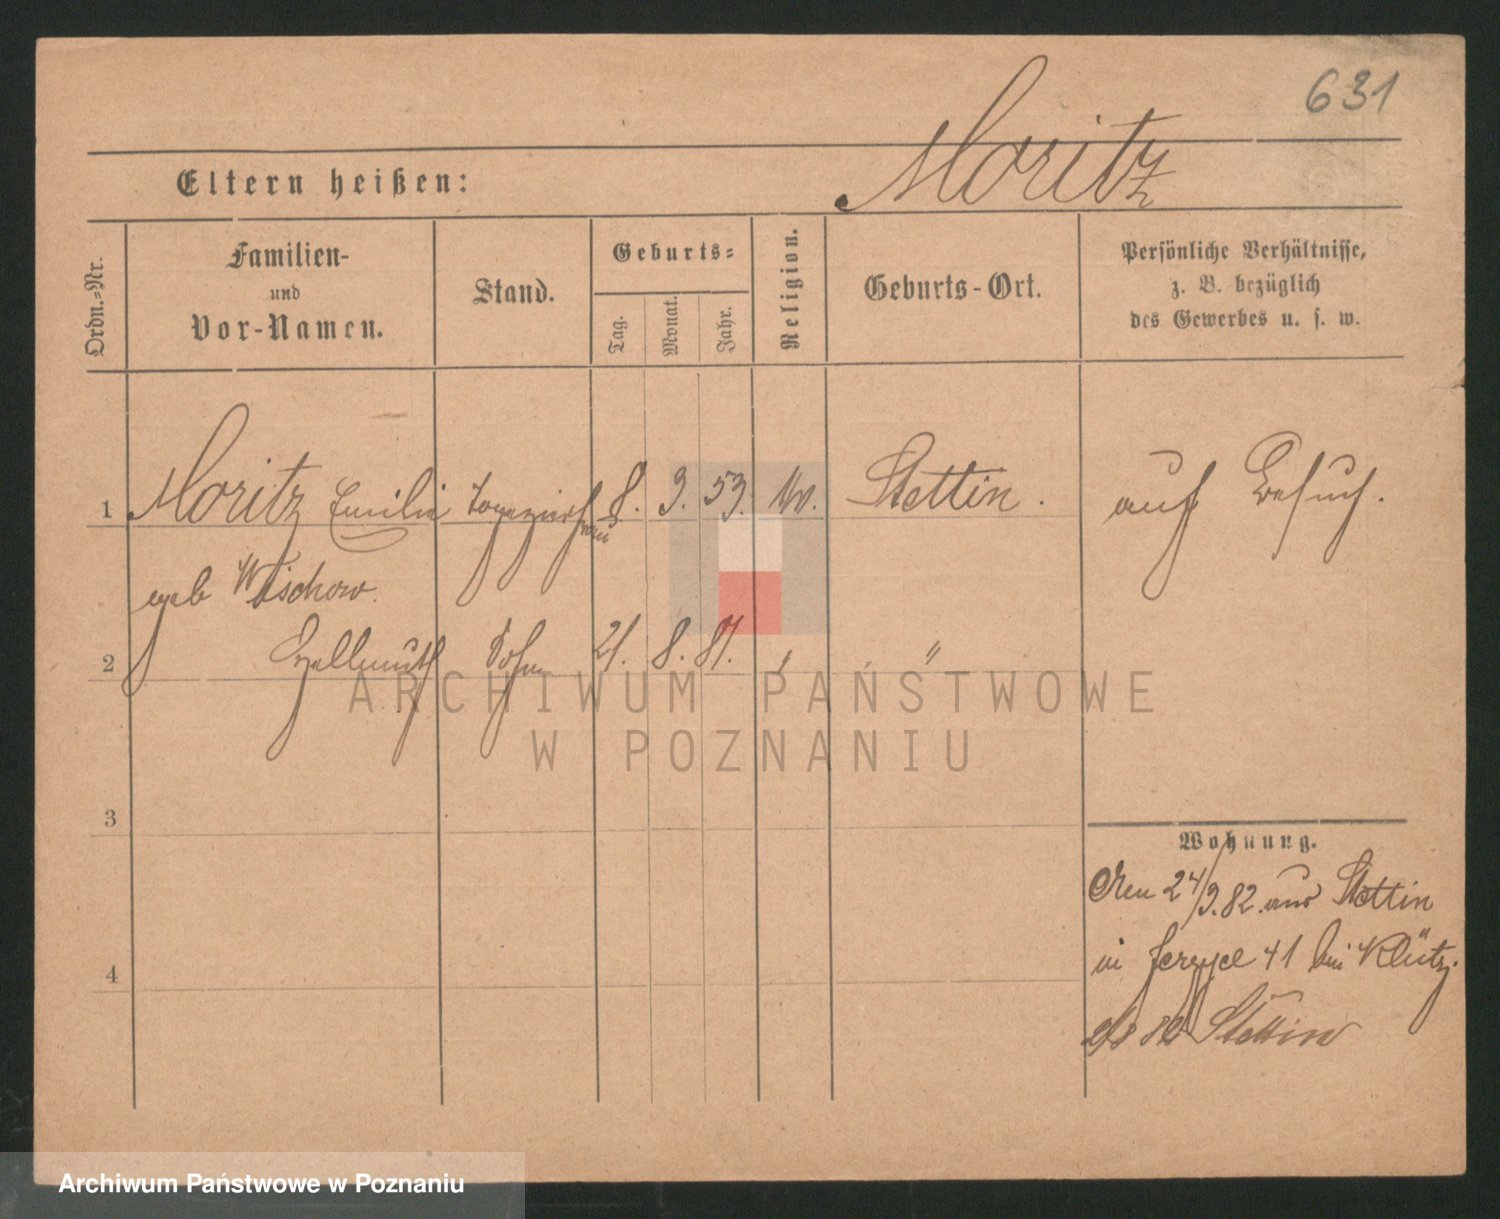 631
Moritz
Eltern heißen:
Ordn.=Nr.
Familien-
und
Vor-Namen.
Stand.
Geburts=
Tag.
Monat.
Jahr.
Religion.
Geburts-Ort.
Persönliche Verhältnisse,
z. B. bezüglich
des Gewerbes u. s. w.
1 Moritz Emilie 8. 9. 53. Stettin. auf Besuch.
geb Wischow.
2 Hellmuth Sohn 21. 8. 81. " "
3
4
Wohnung.
Den 24/9. 82. aus Stettin
in 41 bei Klütz.
82 Stettin
ARCHIWUM PAŃSTWOWE
W POZNANIU
Archiwum Państwowe w Poznaniu